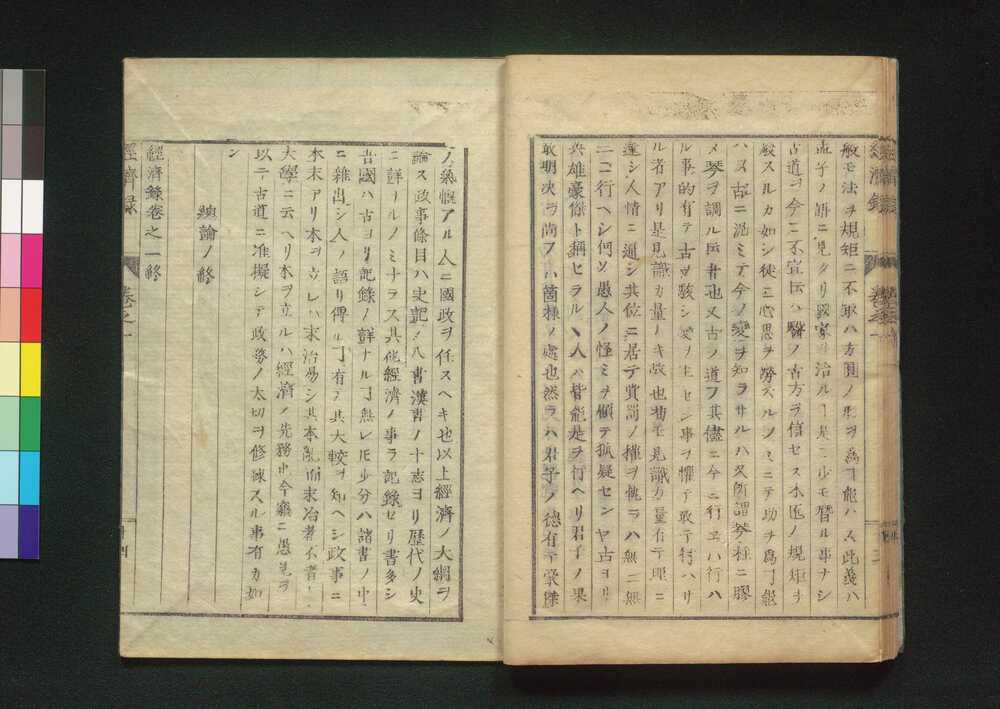 般モ法ヲ規矩ニ不取ハ方圓ノ形ヲ為ヿ能ハス此義ハ
孟子ノ語ニ見タリ國家ヲ治ルヿ是ニ少モ替ル事ナシ
古道ヲ今ニ不宜ト云ハ醫ノ古方ヲ信セス木匠ノ規矩ヲ
般スルカ如シ徒ニ心思ヲ勞スルノミニテ功ヲ為ヿ能
ハス古ニ泥ミテ今ノ變ヲ知ラサルハ又所謂琴柱ニ膠
メ琴ヲ調ル
ル事的有テ古ヲ駭シ變ヲ生セン事ヲ懼テ敢テ行ハサ
ル者アリ是見識力量ノナキ故也苟モ見識力量有テ理ニ
達シ人情ニ通シ其位ニ居テ賞罰ノ權ヲ執ラハ無二無
三ニ行ヘシ何ソ愚人ノ怪ミヲ顧テ狐疑センヤ古ヨリ
英雄豪傑ト稱セラルヽ人ハ皆能是ヲ行ヘリ君子ノ果
敢明決ヲ尚フハ箇様ノ處也然ラハ君子ノ德有テ豪傑
經濟録 卷之一
ノ氣慨アル人ニ國政ヲ任スヘキ也以上經濟ノ大綱ヲ
論ス政事條目ハ史記ノ八書漢書ノ十志ヨリ歴代ノ史
ニ詳ナルノミナラス其他經濟ノ事ヲ記録セリ書多シ
吾國ハ古ヨリ記録ノ詳ナルヿ無レ𪜈少分ハ諸書ノ中
ニ雜出シ人ノ語リ傳ルヿ有ハ其大較ヲ知ヘシ政事ニ
本末アリ本ヲ立レハ末治易シ其本亂而末治者不有ト
大學ニ云ヘリ本ヲ立ルハ經濟ノ先務也今竊ニ愚見ヲ
以テ古道ニ准擬シテ政務ノ太切ヲ修錬スル事有カ如
シ
總論ノ終
經濟録卷之一終
經濟録 卷之一 十四